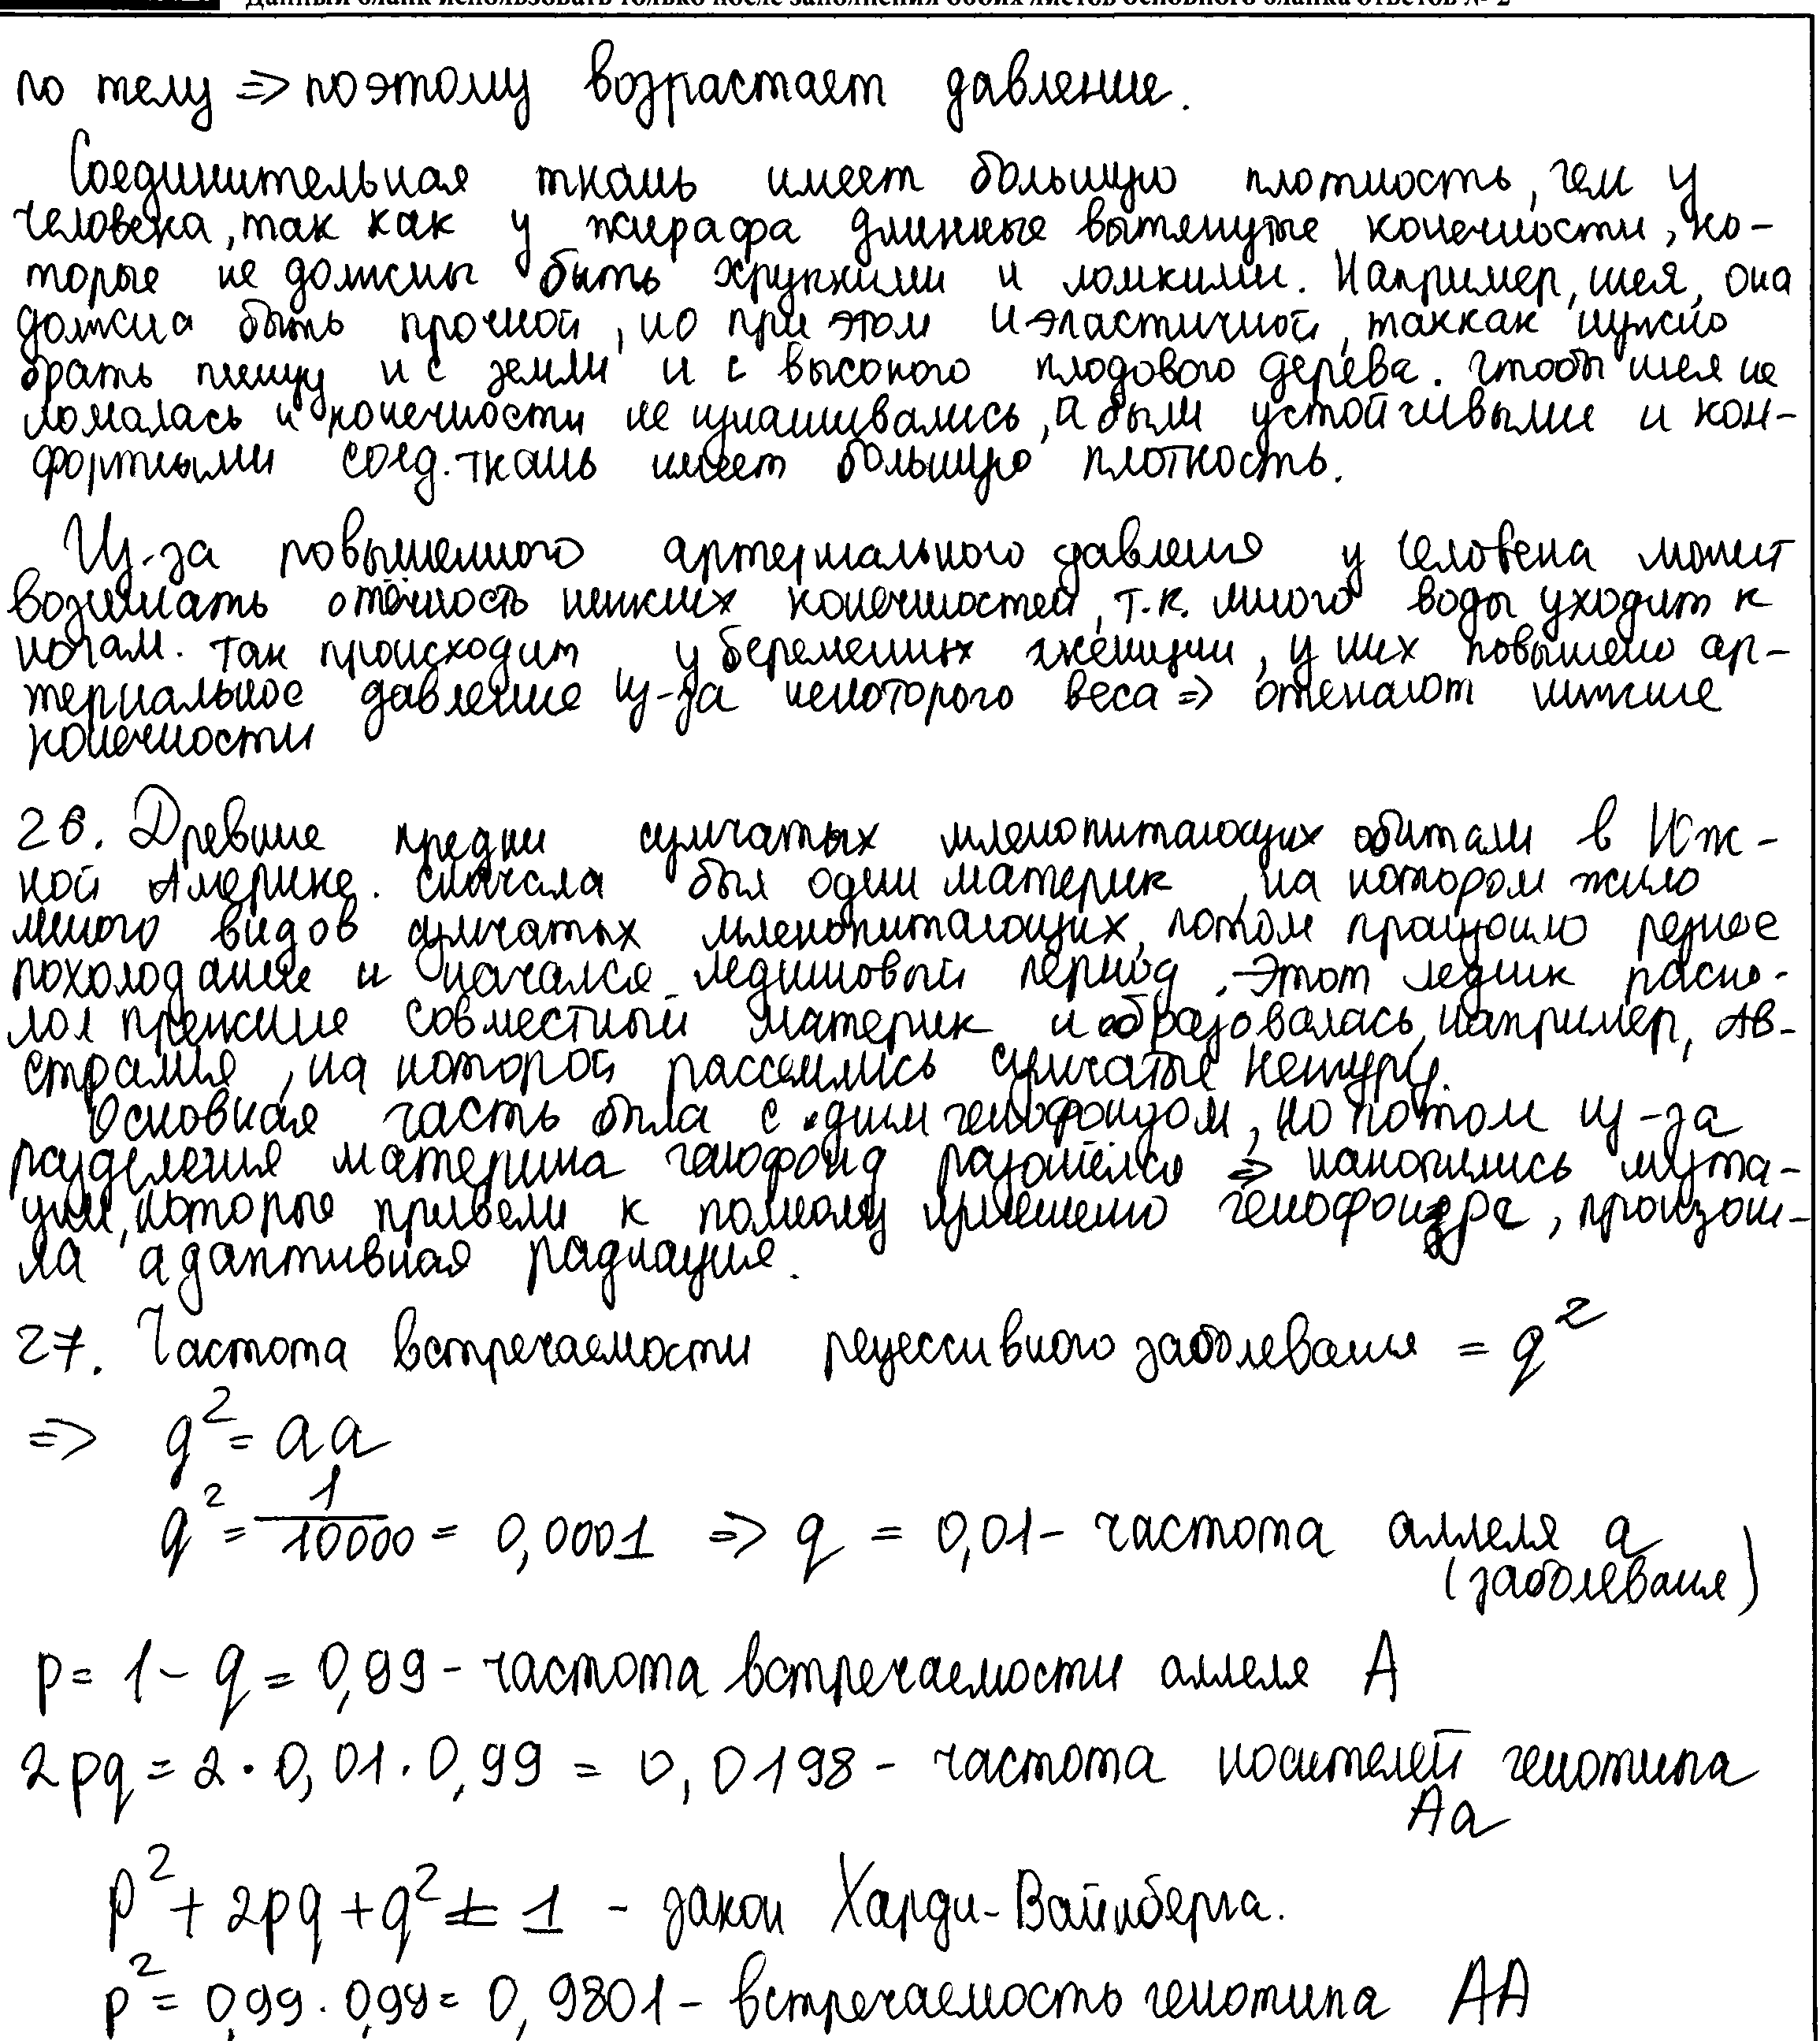 Данный бланк использовать только после заполнения обоих листов основного бланка ответов № 2
по телу => поэтому возрастает давление.
Соединительная ткань имеет большую плотность, чем у
человека, так как у жирафа длинные вытянутые конечности, ко-
торые не должны быть хрупкими и ломкими. Например, шея, она
должна быть прочной, но при этом и эластичной, таккак нужно
брать пищу и с земли и с высокого плодового дерева. Чтобы шея не
ломалась и конечности не изнашивались, а были устойчивыми и ком-
фортными соед. ткань имеет большую плотность.
Из-за повышенного артериального давления у человека может
возникать отёчность нижних конечностей, т.к. много воды уходит к
ногам. Так происходит у беременных женщин, у них повышено ар-
териальное давление из-за некоторого веса => отекают нижние
конечности
26. Древние предки сумчатых млекопитающих обитали в Юж-
ной Америке. Сначала был один материк, на котором жило
много видов сумчатых млекопитающих, потом произошло резкое
похолодание и начался ледниковый период. Этот ледник раско-
лол прежние совместный материк и образовалась, например, Ав-
стралия, на которой расселились сумчатые кенгуру.
Основная часть была с одним генофондом, но потом из-за
разделения материка генофонд разошёлся => накопились мута-
ции, которые привели к полному изменению генофонда, произош-
ла адаптивная радиация.
27. Частота встречаемости рецессивного заболевания = q²
=> q² = aa
q² = 1/10000 = 0,0001 => q = 0,01 - частота аллеля a
(заболевания)
p = 1 - q = 0,99 - частота встречаемости аллеля A
2pq = 2 · 0,01 · 0,99 = 0,0198 - частота носителей генотипа
Aa
p² + 2pq + q² = 1 - закон Харди-Вайнберга.
p² = 0,99 · 0,99 = 0,9801 - встречаемость генотипа AA